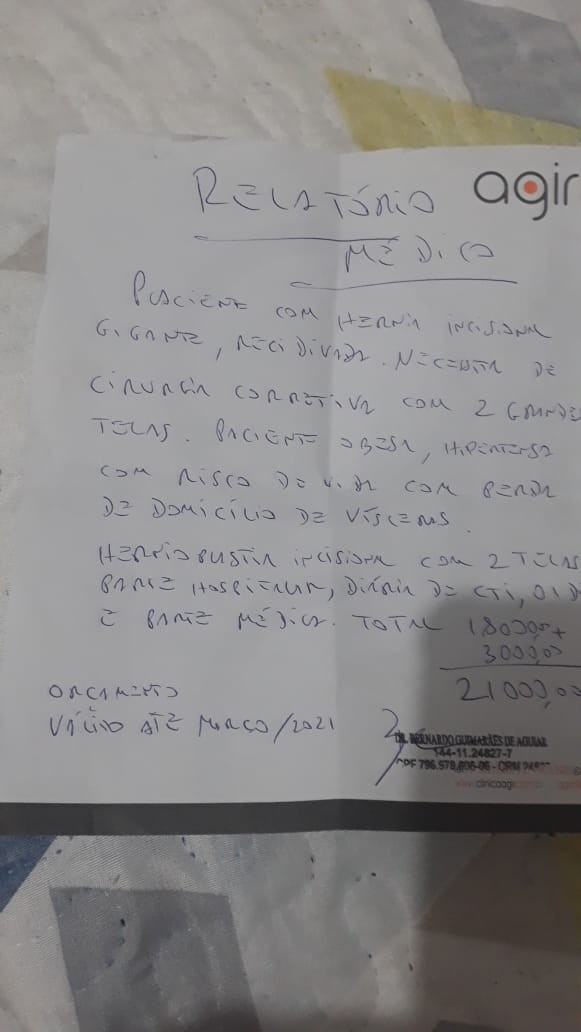 RELATÓRIO
agir
MÉDICO
PACIENTE COM HERNIA INCISIONAL
GIGANTE, RECIDIVADA. NECESSITA DE
CIRURGIA CORRETIVA COM 2 GRANDES
TELAS. PACIENTE OBESA, HIPERTENSA
COM RISCO DE VIDA COM PERDA
DE DOMICÍLIO DE VÍSCERAS.
HERNIOPLASTIA INCISIONAL COM 2 TELAS
PARTE HOSPITALAR, DIÁRIA DE CTI, 01
E PARTE MÉDICA. TOTAL 18000,00+
3000,00
21000,00
ORÇAMENTO
VÁLIDO ATÉ MARÇO/2021
DR. BERNARDO GUIMARÃES DE AGUIAR
144-11.24827-7
CPF - CRM